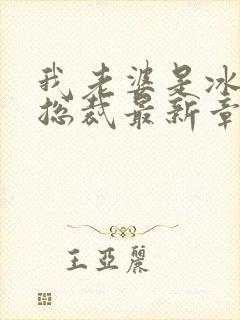 我老婆是冰
总裁最新章
王亚丽